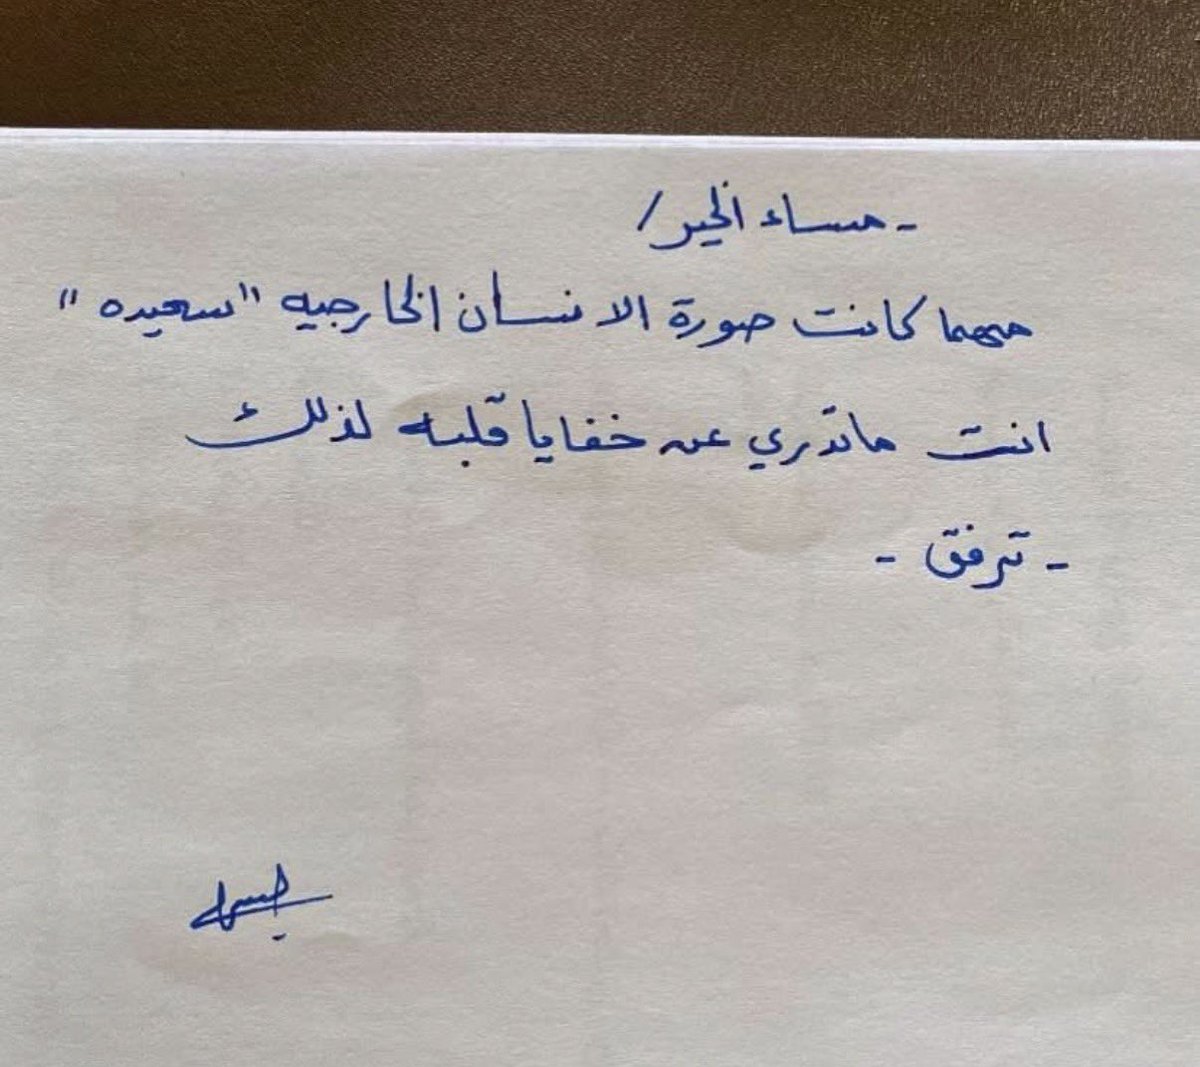 - مساء الخير /
مهما كانت صورة الانسان الخارجيه "سعيده"
انت ماتدري عن خفايا قلبه لذلك
- ترفق -